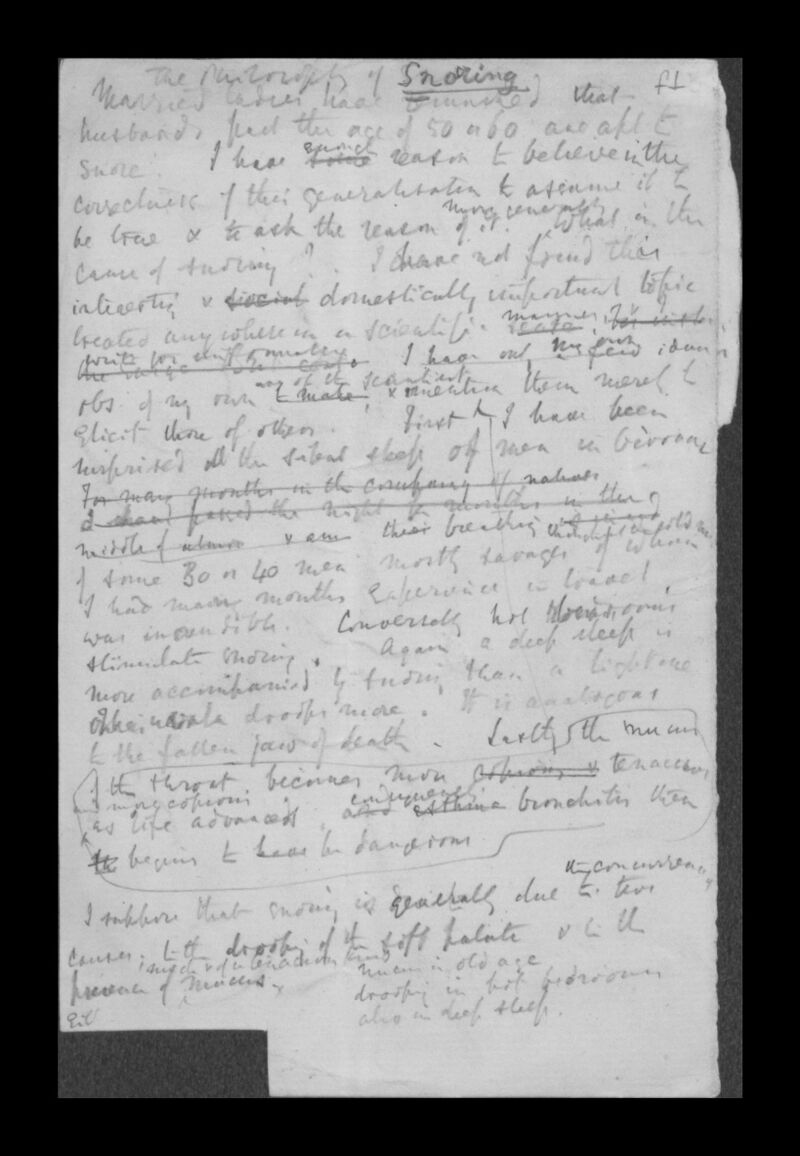 The Philosophy of Snoring f1
Married ladies have that
husbands past the age of 50 or 60 are apt to
snore. I have enough some reason to believe in the
correctness of this generalisation to assume it to
be true & to ask the reason of it. more generally What is the
cause of snoring? I have not found this
interesting & social domestically important topic
treated anywhere in a scientific manner
I have only a few
obs. of my own to make, & mention them merely to
elicit those of others. First I have been
surprised at the silent sleep of men in bivouac
For many months in the company of natives
I passed the night for months in the
middle of & their breathing
of some 30 or 40 men mostly savages of whom
I had many months experience in travel,
was inaudible. Conversely hot bedrooms
stimulate snoring. Again a deep sleep is
more accompanied by snoring than a light one
droops more. It is analogous
to the fallen jaw of death. Lastly, the mucus
of the throat becomes more copious & tenacious
& more copious
as life advances, and asthma bronchitis then
begins to be dangerous
the concurrence
I suppose that snoring is generally due to two
causes; to the drooping of the soft palate & to the
presence of much & of a tenacious kind mucus.
mucus in old age
drooping in hot bedrooms
also in deep sleep.